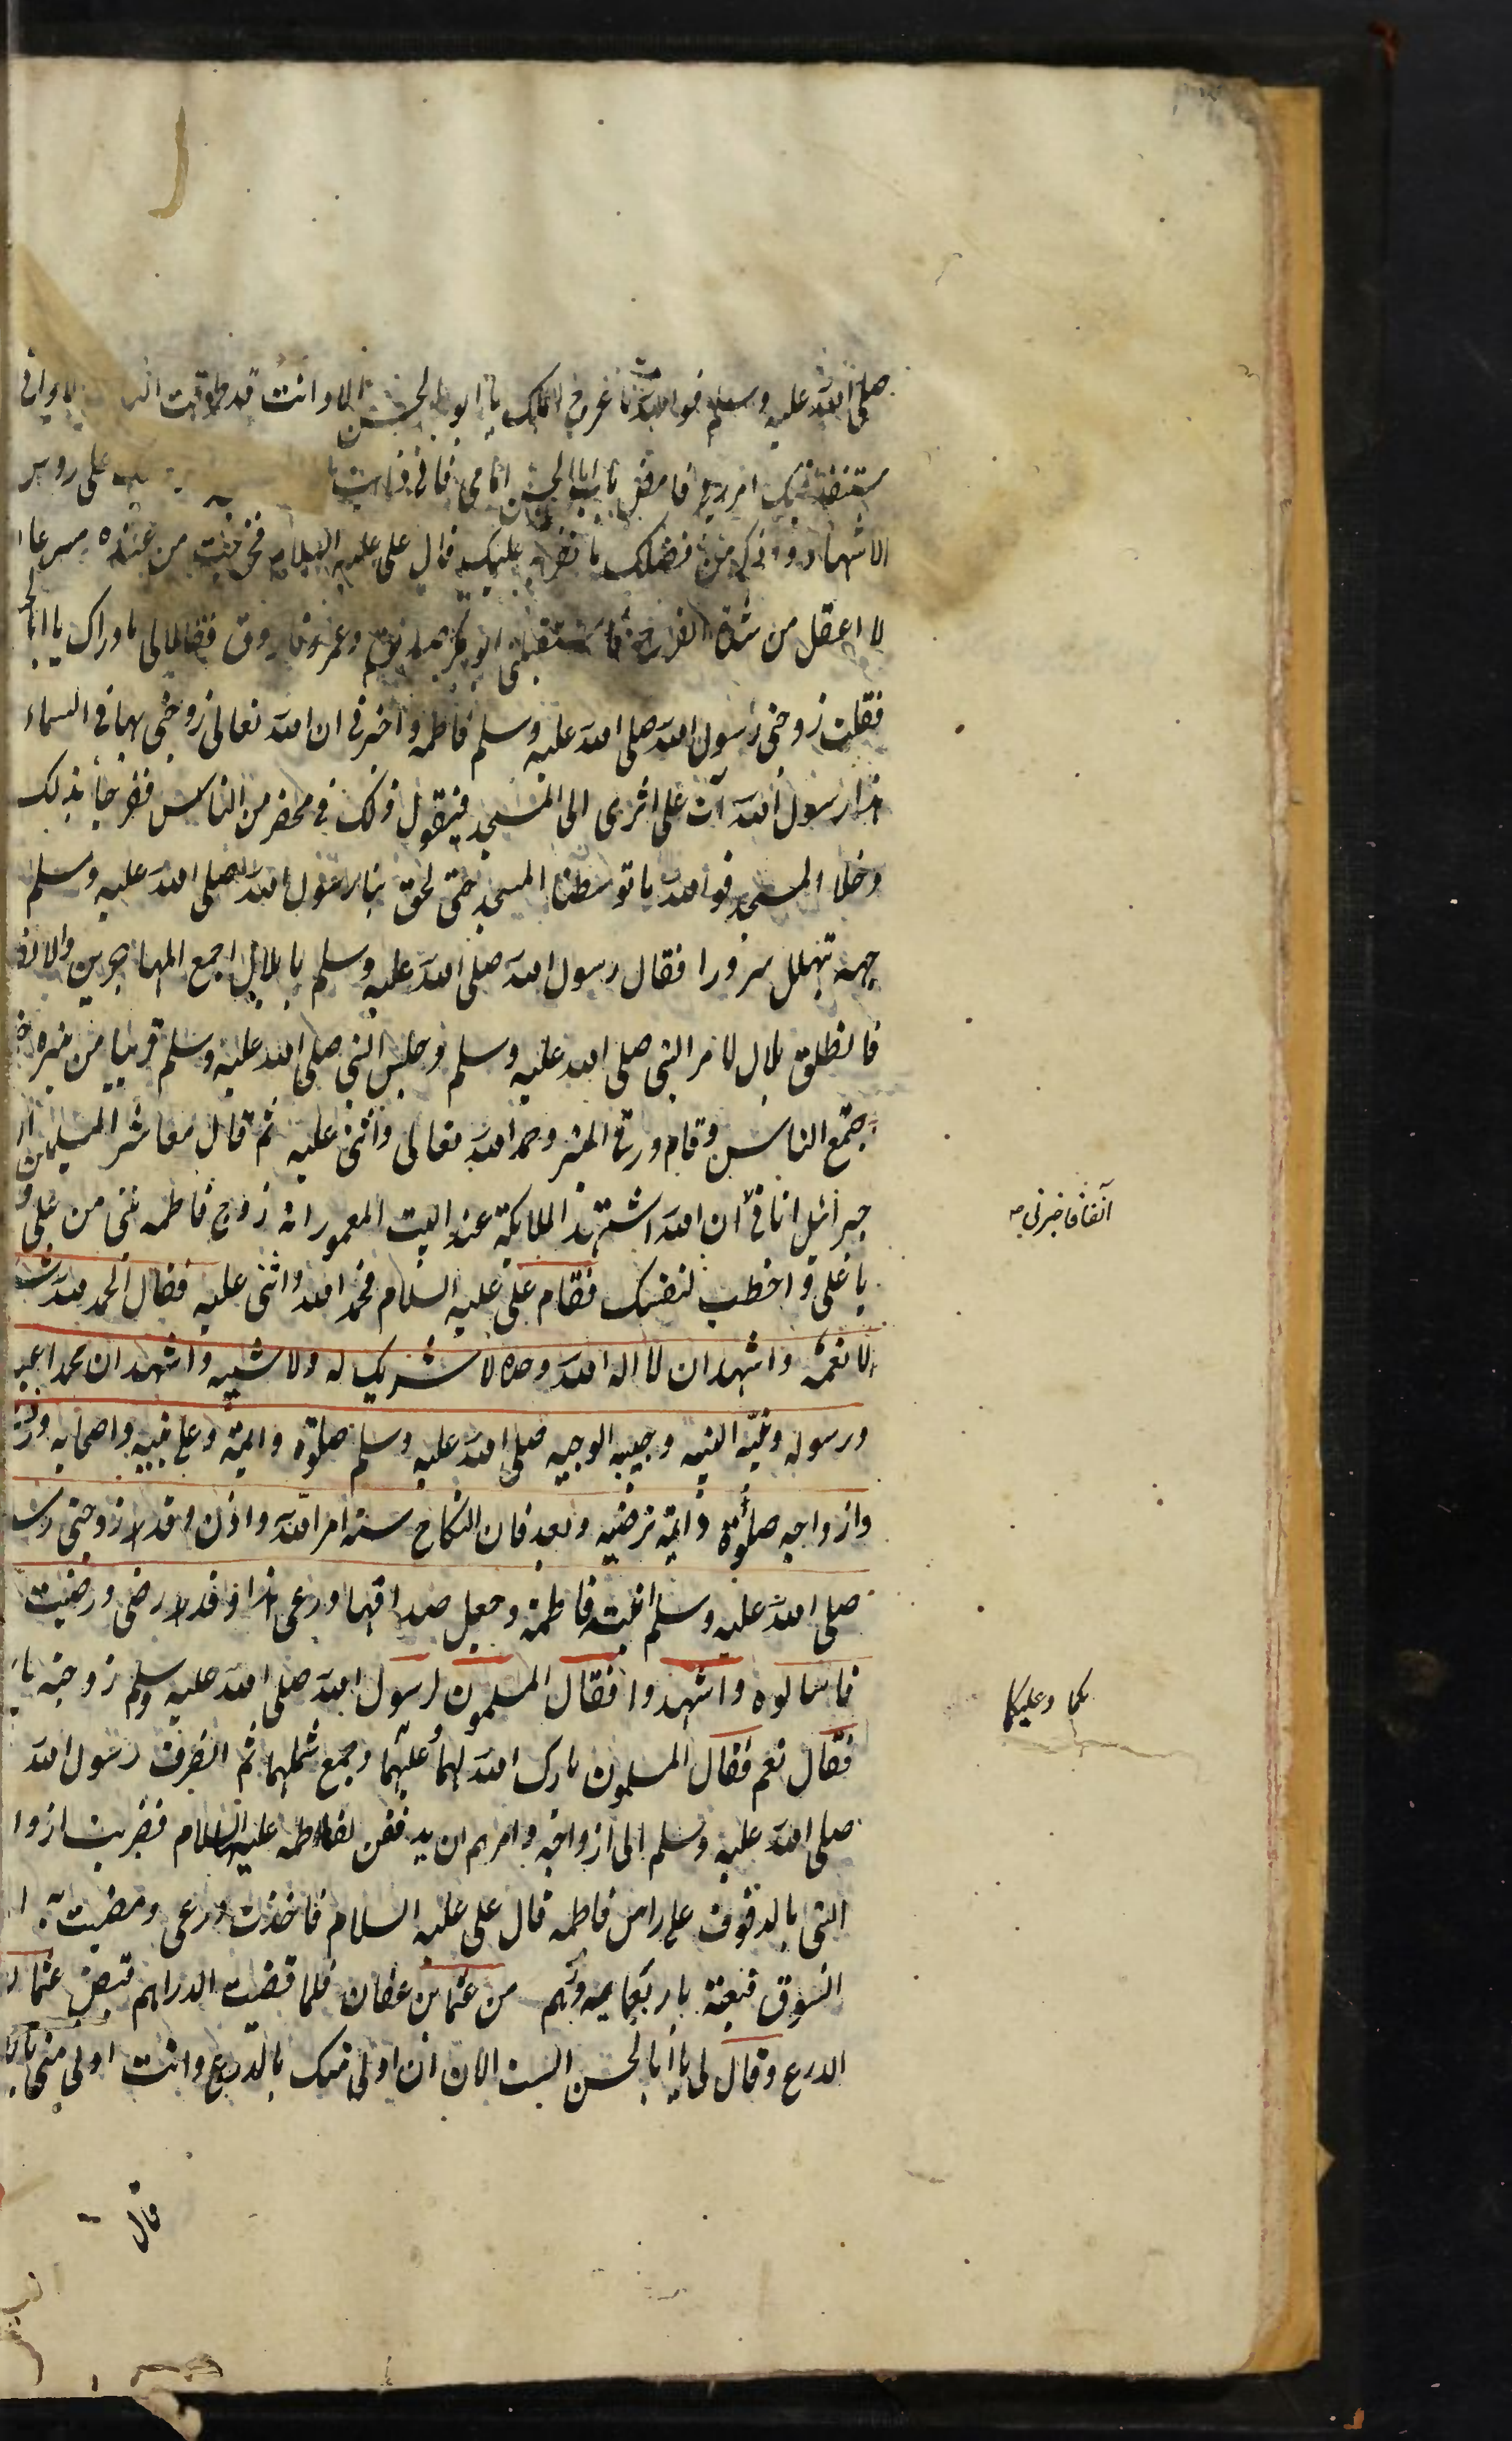 صلى الله عليه وسلم فوالله ما عرج الملك يا ابو الحسن الا وانت قد طرقت الباب الا وانى
فيك امر ربى فامض يا ابا الحسن امامى فانى على روس
الاشهاد واذكر من فضلك ما تقر به عليك قال على عليه السلام فخرجت من عنده مسرعا
لا اعقل من شدة الفرح فاستقبلنى ابو بكر وعمر فقالا لى ما وراك يا ابا الحسن
فقلت زوجنى رسول الله صلى الله عليه وسلم فاطمه واخبرنى ان الله تعالى زوجنى بها فى السماء
هذا رسول الله آت على اثرى الى المسجد فيقول ذلك فى محضر من الناس ففرحا بذلك
دخلا المسجد فوالله ما توسطنا المسجد حتى لحق بنا رسول الله صلى الله عليه وسلم
جهه تهلل سرورا فقال رسول الله صلى الله عليه وسلم يا بلال اجمع المهاجرين والانص
فانطلق بلال لامر النبى صلى الله عليه وسلم وجلس النبى صلى الله عليه وسلم قريبا من منبره
جتمع الناس وقام ورقى المنبر وحمد الله تعالى واثنى عليه ثم قال معاشر المسلمين ان
جبرائيل اتانى ان الله اشهد الملائكة عند البيت المعمور انه زوج فاطمه منى من على و
يا على و اخطب لنفسك فقام على عليه السلام فحمد الله واثنى عليه فقال الحمد لله
لانعمه واشهد ان لا اله الله وحده لا شريك له ولا شبيه واشهد ان محمدا عبد
ورسوله ونبيه النبيه وحبيبه الوجيه صلى الله عليه وسلم صلوة دايمة وعلى واصحابه
وازواجه صلوة دايمة ترضيه وبعد فان النكاح سنه امر الله واذن وقد زوجنى رس
صلى الله عليه وسلم ابنته فاطمة وجعل صداقها درعى هذا وقد رضى ورضيت
فاسالوه واشهدوا فقال المسلمون لرسول الله صلى الله عليه وسلم زوجته يا
فقال نعم فقال المسلمون بارك الله لهما وعليهما وجمع شملهما ثم انصرف رسول الله
صلى الله عليه وسلم الى ازواجه وامرهم ان يدففن لفاطمه عليها السلام فضربت ازوا
النبى بالدفوف على راس فاطمه قال على عليه السلام فاخذت درعى ومضيت به ا
السوق فبعته باربعمايه درهم من عثمان بن عفان فلما قبضت الدراهم قبض عثمان
الدرع وقال لى يا ابا الحسن الست الان ان اولى منك بالدرع وانت اولى منى
قال
آنفا فاخبرنى صح
لكما وعليكما